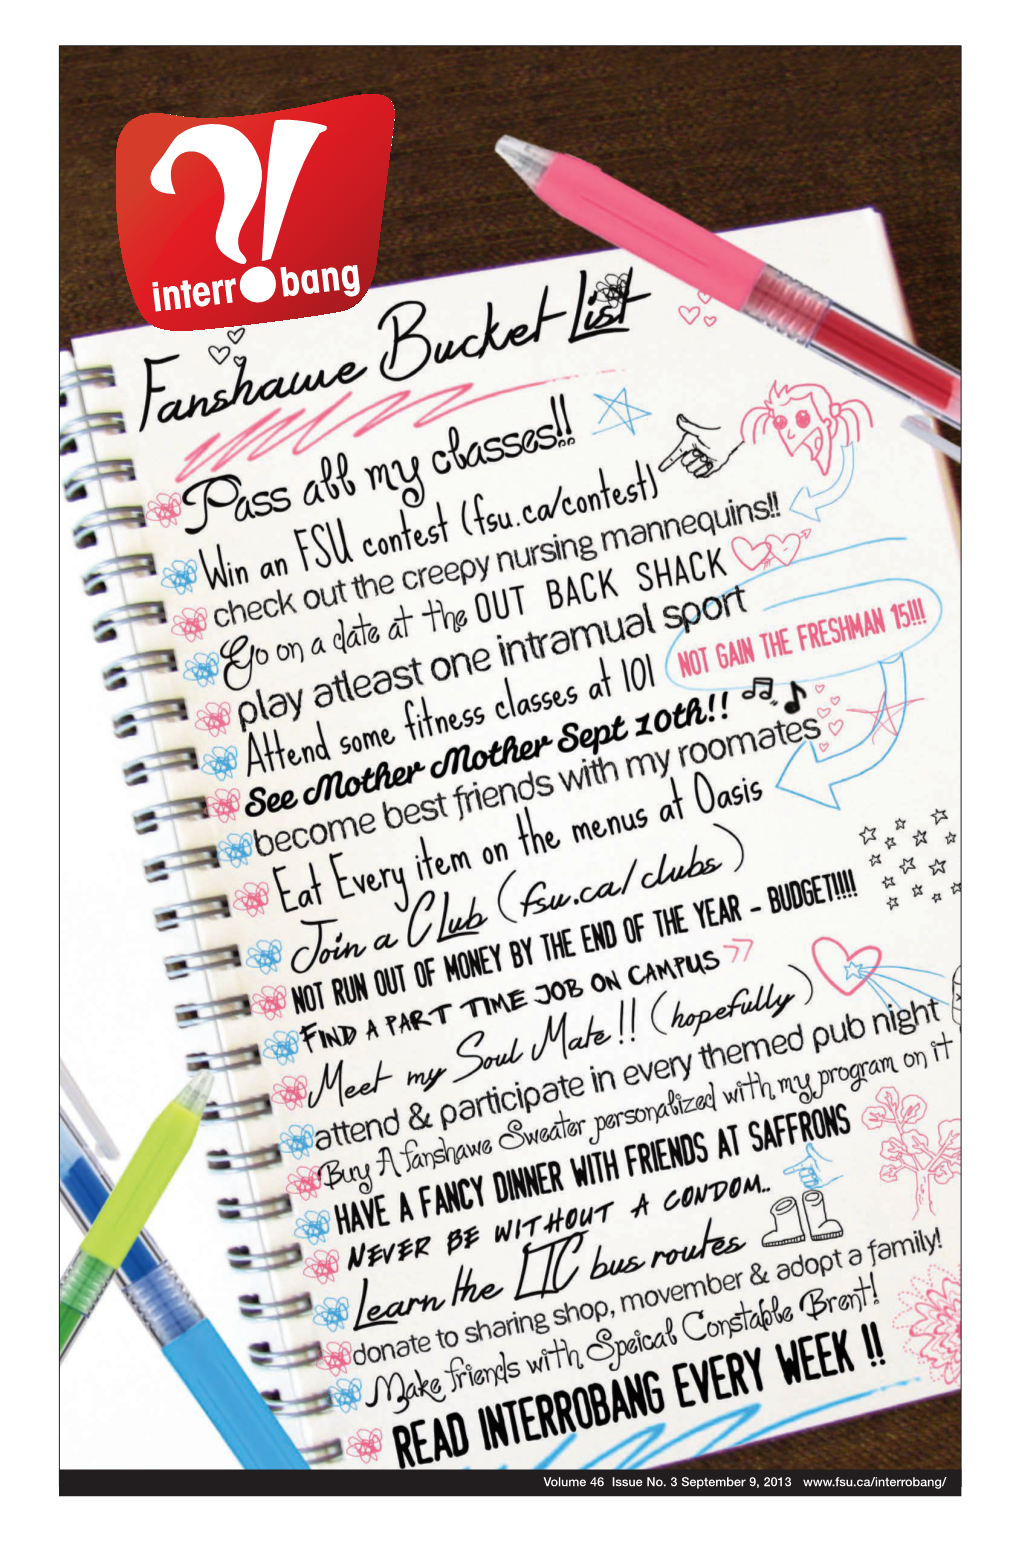 ?!
interrobang
Fanshawe Bucket List
Pass all my classes!!
Win an FSU contest (fsu.ca/contest)
check out the creepy nursing mannequins!!
Go on a date at the OUT BACK SHACK
play atleast one intramual sport
NOT GAIN THE FRESHMAN 15!!!
Attend some fitness classes at 101
See Mother Mother Sept 10th!!
become best friends with my roomates
Eat Every item on the menus at Oasis
Join a Club (fsu.ca/clubs)
NOT RUN OUT OF MONEY BY THE END OF THE YEAR - BUDGET!!!!
FIND A PART TIME JOB ON CAMPUS
Meet my Soul Mate!! (hopefully)
attend & participate in every themed pub night
Buy A fanshawe Sweater personalized with my program on it
HAVE A FANCY DINNER WITH FRIENDS AT SAFFRONS
NEVER BE WITHOUT A CONDOM..
Learn the LTC bus routes
donate to sharing shop, movember & adopt a family!
Make friends with Speical Constable Brent!
READ INTERROBANG EVERY WEEK !!
Volume 46 Issue No. 3 September 9, 2013 www.fsu.ca/interrobang/